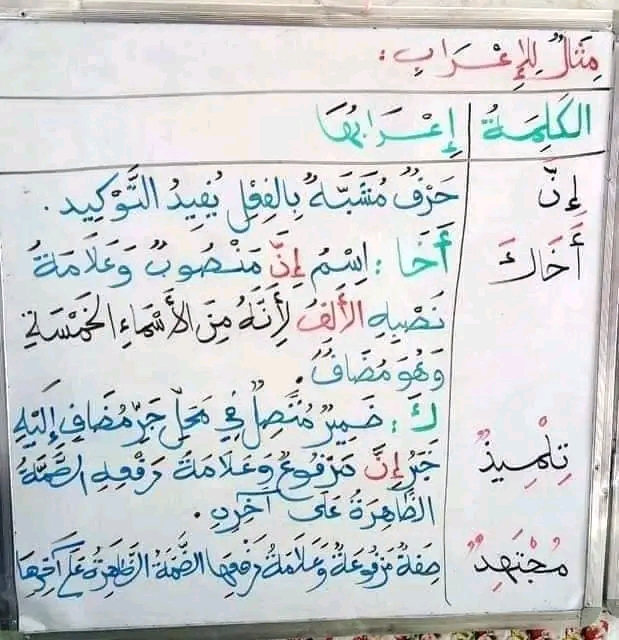 مِثَالٌ لِلْإِعْرَابِ :
الكَلِمَةُ إِعْرَابُهَا
إِنَّ حَرْفٌ مُشَبَّهٌ بِالفِعْلِ يُفِيدُ التَّوْكِيد.
أَخَاكَ أَخَا : اِسْمُ إِنَّ مَنْصُوبٌ وَعَلَامَةُ
نَصْبِهِ الأَلِفُ لِأَنَّهُ مِنَ الأَسْمَاءِ الخَمْسَةِ
وَهُوَ مُضَافٌ.
كَ : ضَمِيرٌ مُتَّصِلٌ فِي مَحَلِّ جَرٍّ مُضَافٍ إِلَيْهِ
تِلْمِيذٌ خَبَرُ إِنَّ مَرْفُوعٌ وَعَلَامَةُ رَفْعِهِ الضَّمَّةُ
الظَّاهِرَةُ عَلَى آخِرِهِ.
مُجْتَهِدٌ صِفَةٌ مَرْفُوعَةٌ وَعَلَامَةُ رَفْعِهَا الضَّمَّةُ الظَّاهِرَةُ عَلَى آخِرِهَا